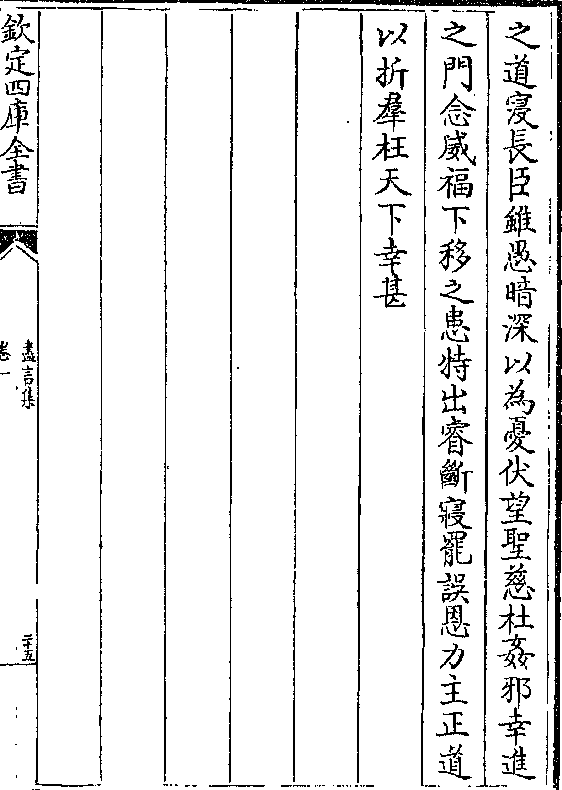 之道寖長臣雖愚暗深以為憂伏望聖慈杜姦邪幸進
之門念威福下移之患特出睿斷寢罷誤恩力主正道
以折羣枉天下幸甚
欽定四庫全書
盡言集
卷一
二十五